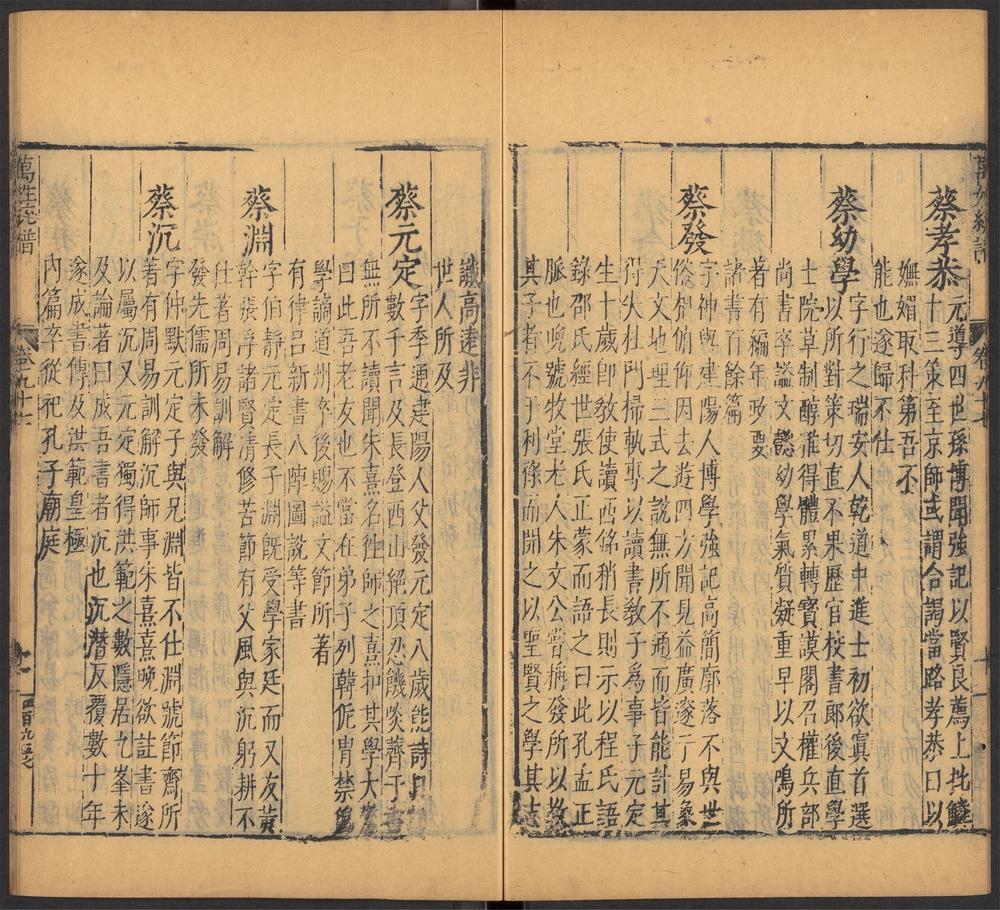 蔡孝恭元導四世孫博聞強記以賢良薦上批鱗
十三策至京師或謂合謁當路孝恭曰以
嫵媚取科第吾不
能也遂歸不仕
蔡幼學字行之瑞安人乾道中進士初欲寘首選
以所對策切直不果歷官校書郎後直學
士院草制醇雅得體累轉寶謨閣召權兵部
尚書卒謚文懿幼學氣質凝重早以文鳴所
著有編年政要
諸書百餘篇
蔡發字神與建陽人博學強記高簡廓落不與世
俗相俯仰因去遊四方聞見益廣遂于易象
天文地理三式之說無所不通而皆能訂其
得失杜門掃軌專以讀書教子為事子元定
生十歲即教使讀西銘稍長則示以程氏語
錄邵氏經世張氏正蒙而語之曰此孔孟正
脉也晩號牧堂老人朱文公嘗稱發所以教
其子者不于利祿而開之以聖賢之學其志
識高遠非
世人所及
蔡元定字季通建陽人父發元定八歲能詩日
數千言及長登西山絕頂忍饑啖薺于書
無所不讀聞朱熹名徃師之熹扣其學大驚
曰此吾老友也不當在弟子列韓侂冑禁僞
學謫道州卒後賜謚文節所著
有律呂新書八陣圖說等書
蔡淵字伯靜元定長子淵旣受學家廷而又友黃
幹張孚諸賢清修苦節有父風與沉躬耕不
仕著周易訓解
發先儒所未發
蔡沉字仲默元定子與兄淵皆不仕淵號節齋所
著有周易訓解沉師事朱熹熹晩欲註書遂
以屬沉又元定獨得洪範之數隱居九峯未
及論著曰成吾書者沉也沉潛反覆數十年
遂成書傳及洪範皇極
內篇卒從祀孔子廟庭
萬姓統譜
卷九十七